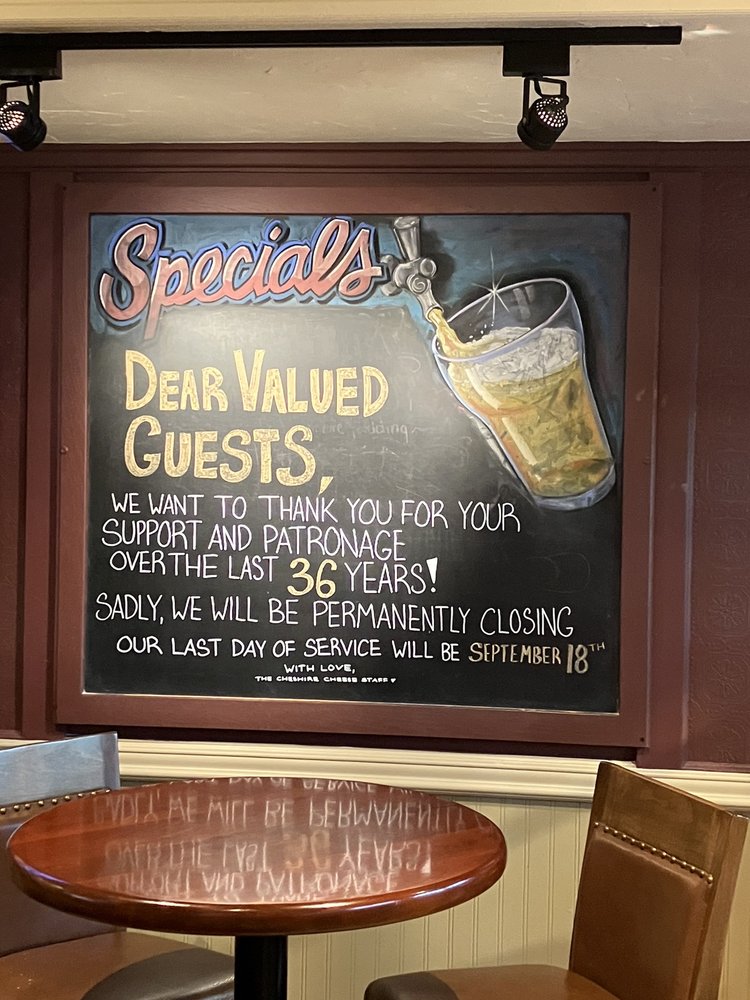 Specials
DEAR VALUED
GUESTS,
WE WANT TO THANK YOU FOR YOUR
SUPPORT AND PATRONAGE
OVER THE LAST 36 YEARS!
SADLY, WE WILL BE PERMANENTLY CLOSING
OUR LAST DAY OF SERVICE WILL BE SEPTEMBER 18TH
WITH LOVE,
THE CHESHIRE CHEESE STAFF ♥